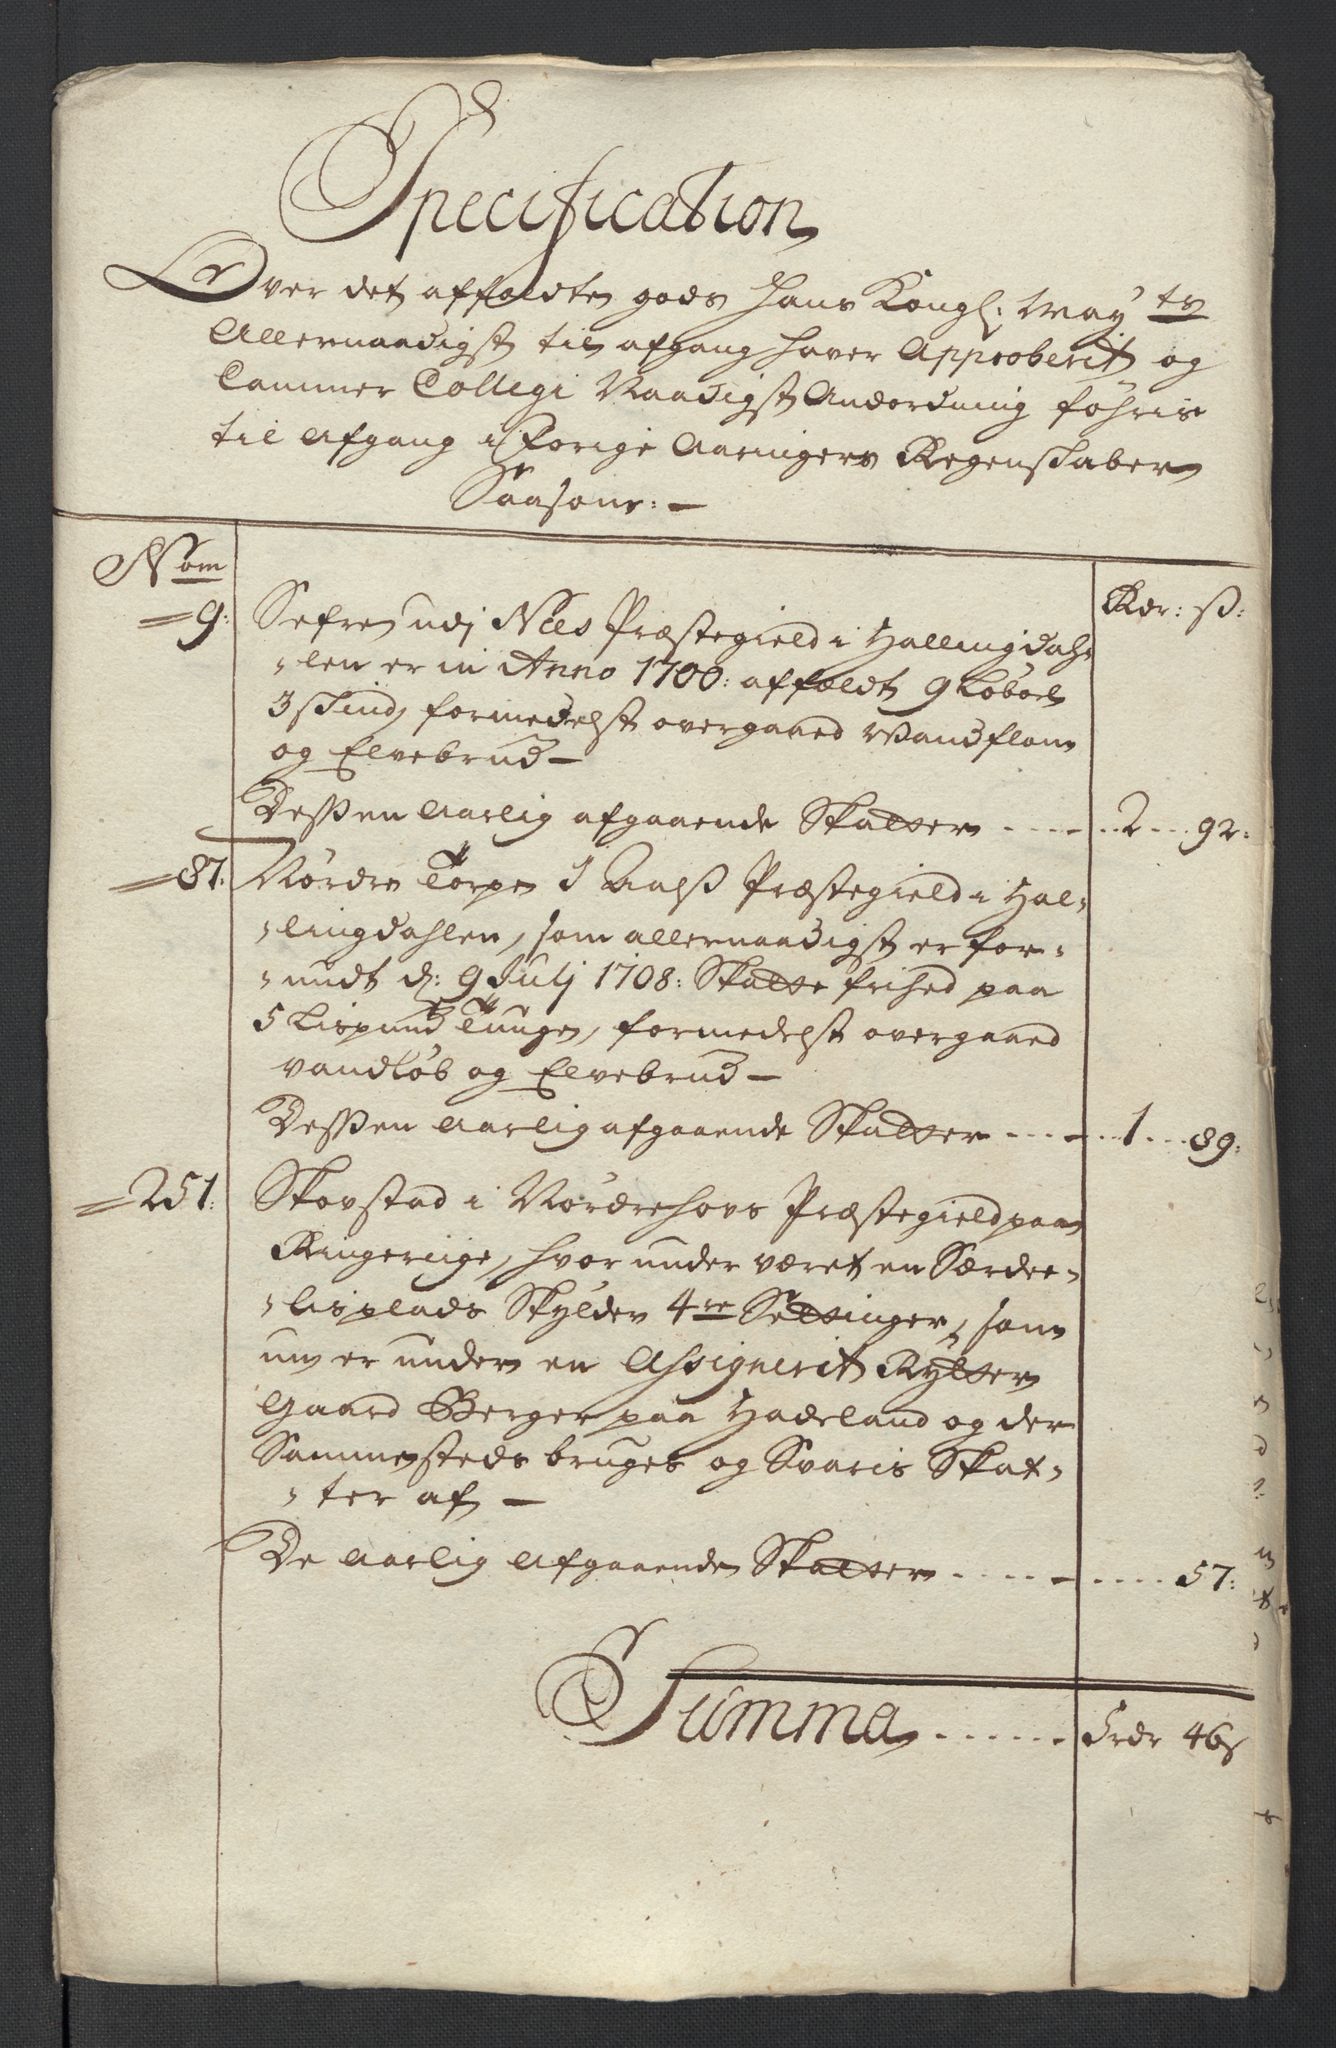 Specification
Over det affældte gods Hans Kongl: May ts
Allernaadigst til afgang haver Approberit og
Cammer Collegi Naadigst Anordning föhris
til Afgang i Forige Aaringers Regenskaber
Saasom: —
Nom
Rdr: ß:
9: Sefre udj Nees Præstegield i Hallingdah-
len er in Anno 1700: affældt 9 Löbsl
3 skind, formedelst overgaaed Vandflom
og Elvebrud —
Dessen aarlig afgaaende Skatter 2 92:
87: Nordre Torpe I Aalß Præstegield i Hal-
lingdahlen, som allernaadigst er for-
undt d: 9 Julj 1708: Skatte frihed paa
5 Lispund Tunge, formedelst overgaaed
vandlöb og Elvebrud —
Dessen aarlig afgaaende Skatter 1 89:
251: Skovstad i Nordrehovs Præstegield paa
Ringeriige, hvor under været en Særdee-
lisplads Skylder 4re Settinger, som
nu er under en Assignerit Rytter
Gaard Berger paa Hadeland og der
Sammesteds bruges og Svaris Skat-
ter af —
De aarlig Afgaaende Skatter 57:
Summa 5 rdr 46 s